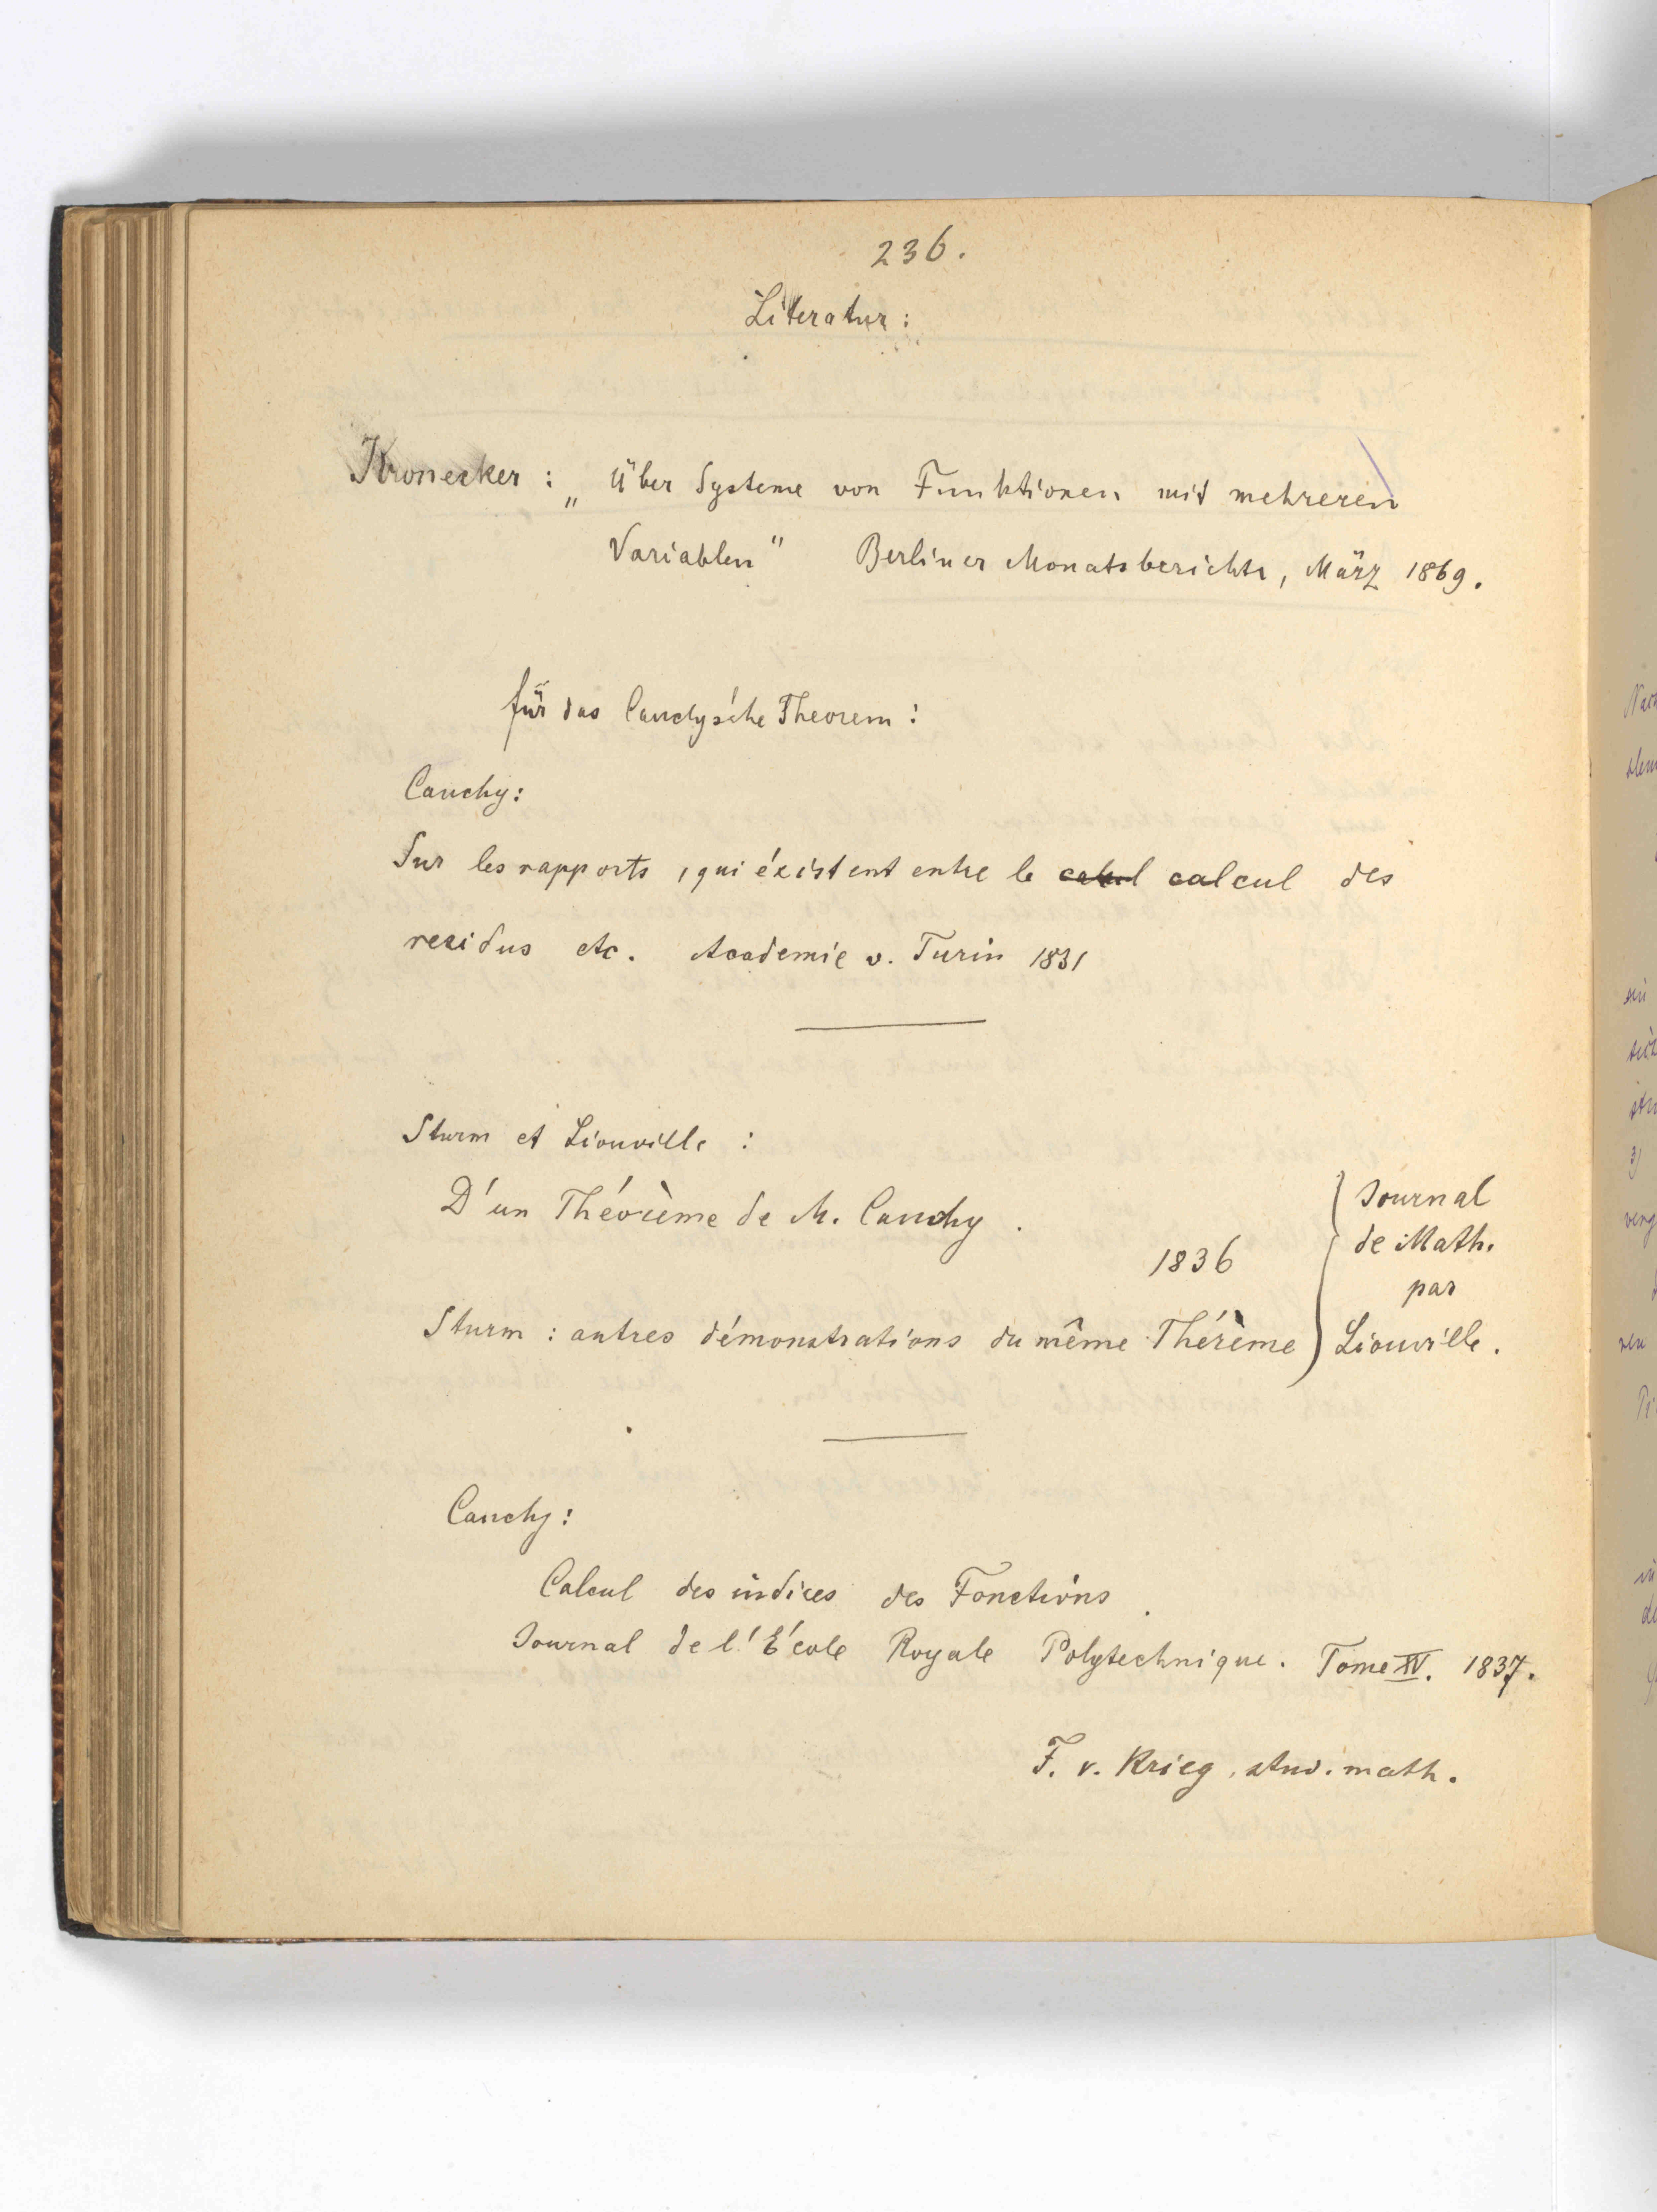 236.
Literatur:
Kronecker : „ Über Systeme von Funktionen mit mehreren
Variablen“ Berliner Monatsberichte, März 1869.
für das Cauchy'sche Theorem:
Cauchy:
Sur les rapports, qui éxistent entre le calcul des
residus etc. Academie v. Turin 1831
Sturm et Liouville :
D'un Théorème de M. Cauchy.
1836
Sturm : autres démonstrations du même Thérème
Journal
de Math.
par
Liouville.
Cauchy:
Calcul des indices des Fonctions.
Journal de l'École Royale Polytechnique. Tome XV. 1837.
F. v. Krieg, stud. math.